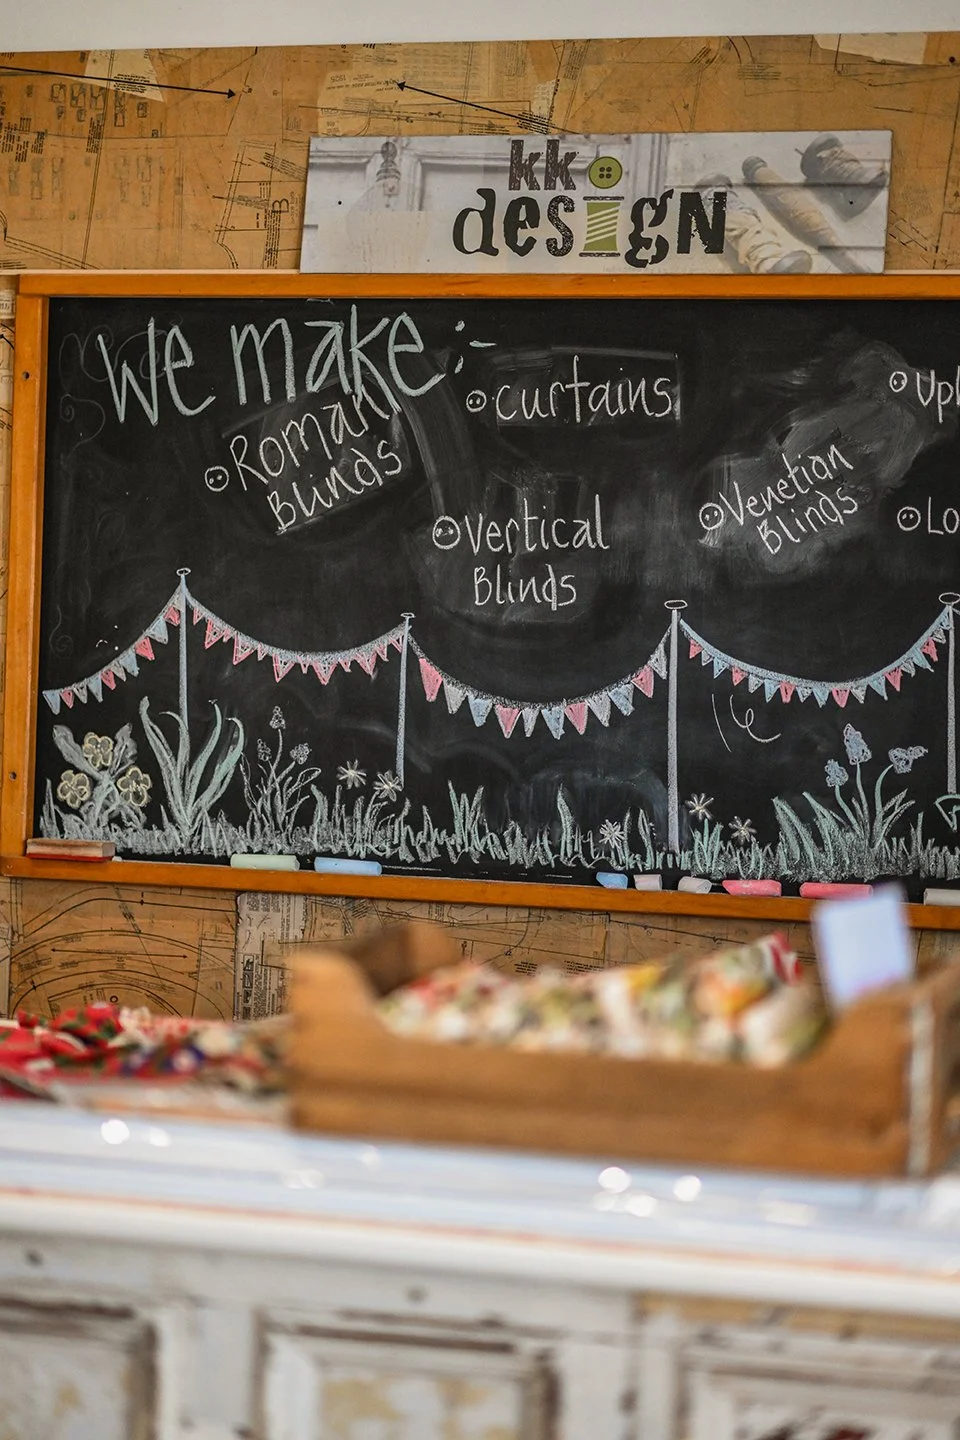 kk
design
We make:-
Roman
Blinds
curtains
Vertical
Blinds
Venetian
Blinds